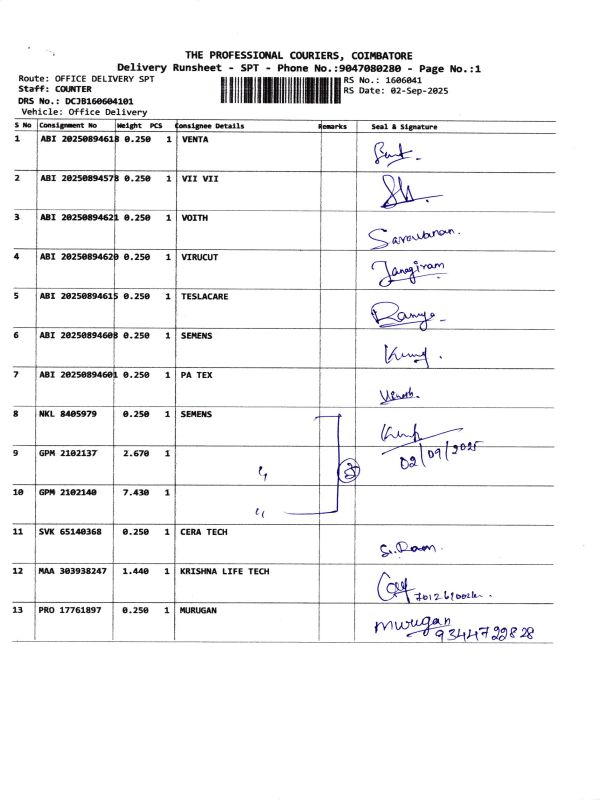 THE PROFESSIONAL COURIERS, COIMBATORE
Delivery Runsheet - SPT - Phone No.:9047080280 - Page No.:1
Route: OFFICE DELIVERY SPT RS No.: 1606041
Staff: COUNTER RS Date: 02-Sep-2025
DRS No.: DCJB160604101
Vehicle: Office Delivery
S No Consignment No Weight PCS Consignee Details Remarks Seal & Signature
1 ABI 20250894618 0.250 1 VENTA
2 ABI 20250894578 0.250 1 VII VII
3 ABI 20250894621 0.250 1 VOITH Saravanan.
4 ABI 20250894620 0.250 1 VIRUCUT Janagiram
5 ABI 20250894615 0.250 1 TESLACARE Ramya
6 ABI 20250894608 0.250 1 SEMENS
7 ABI 20250894601 0.250 1 PA TEX
8 NKL 8405979 0.250 1 SEMENS
02/09/2025
9 GPM 2102137 2.670 1 〃
10 GPM 2102140 7.430 1 〃
11 SVK 65140368 0.250 1 CERA TECH
12 MAA 303938247 1.440 1 KRISHNA LIFE TECH
13 PRO 17761897 0.250 1 MURUGAN Murugan
9344722828